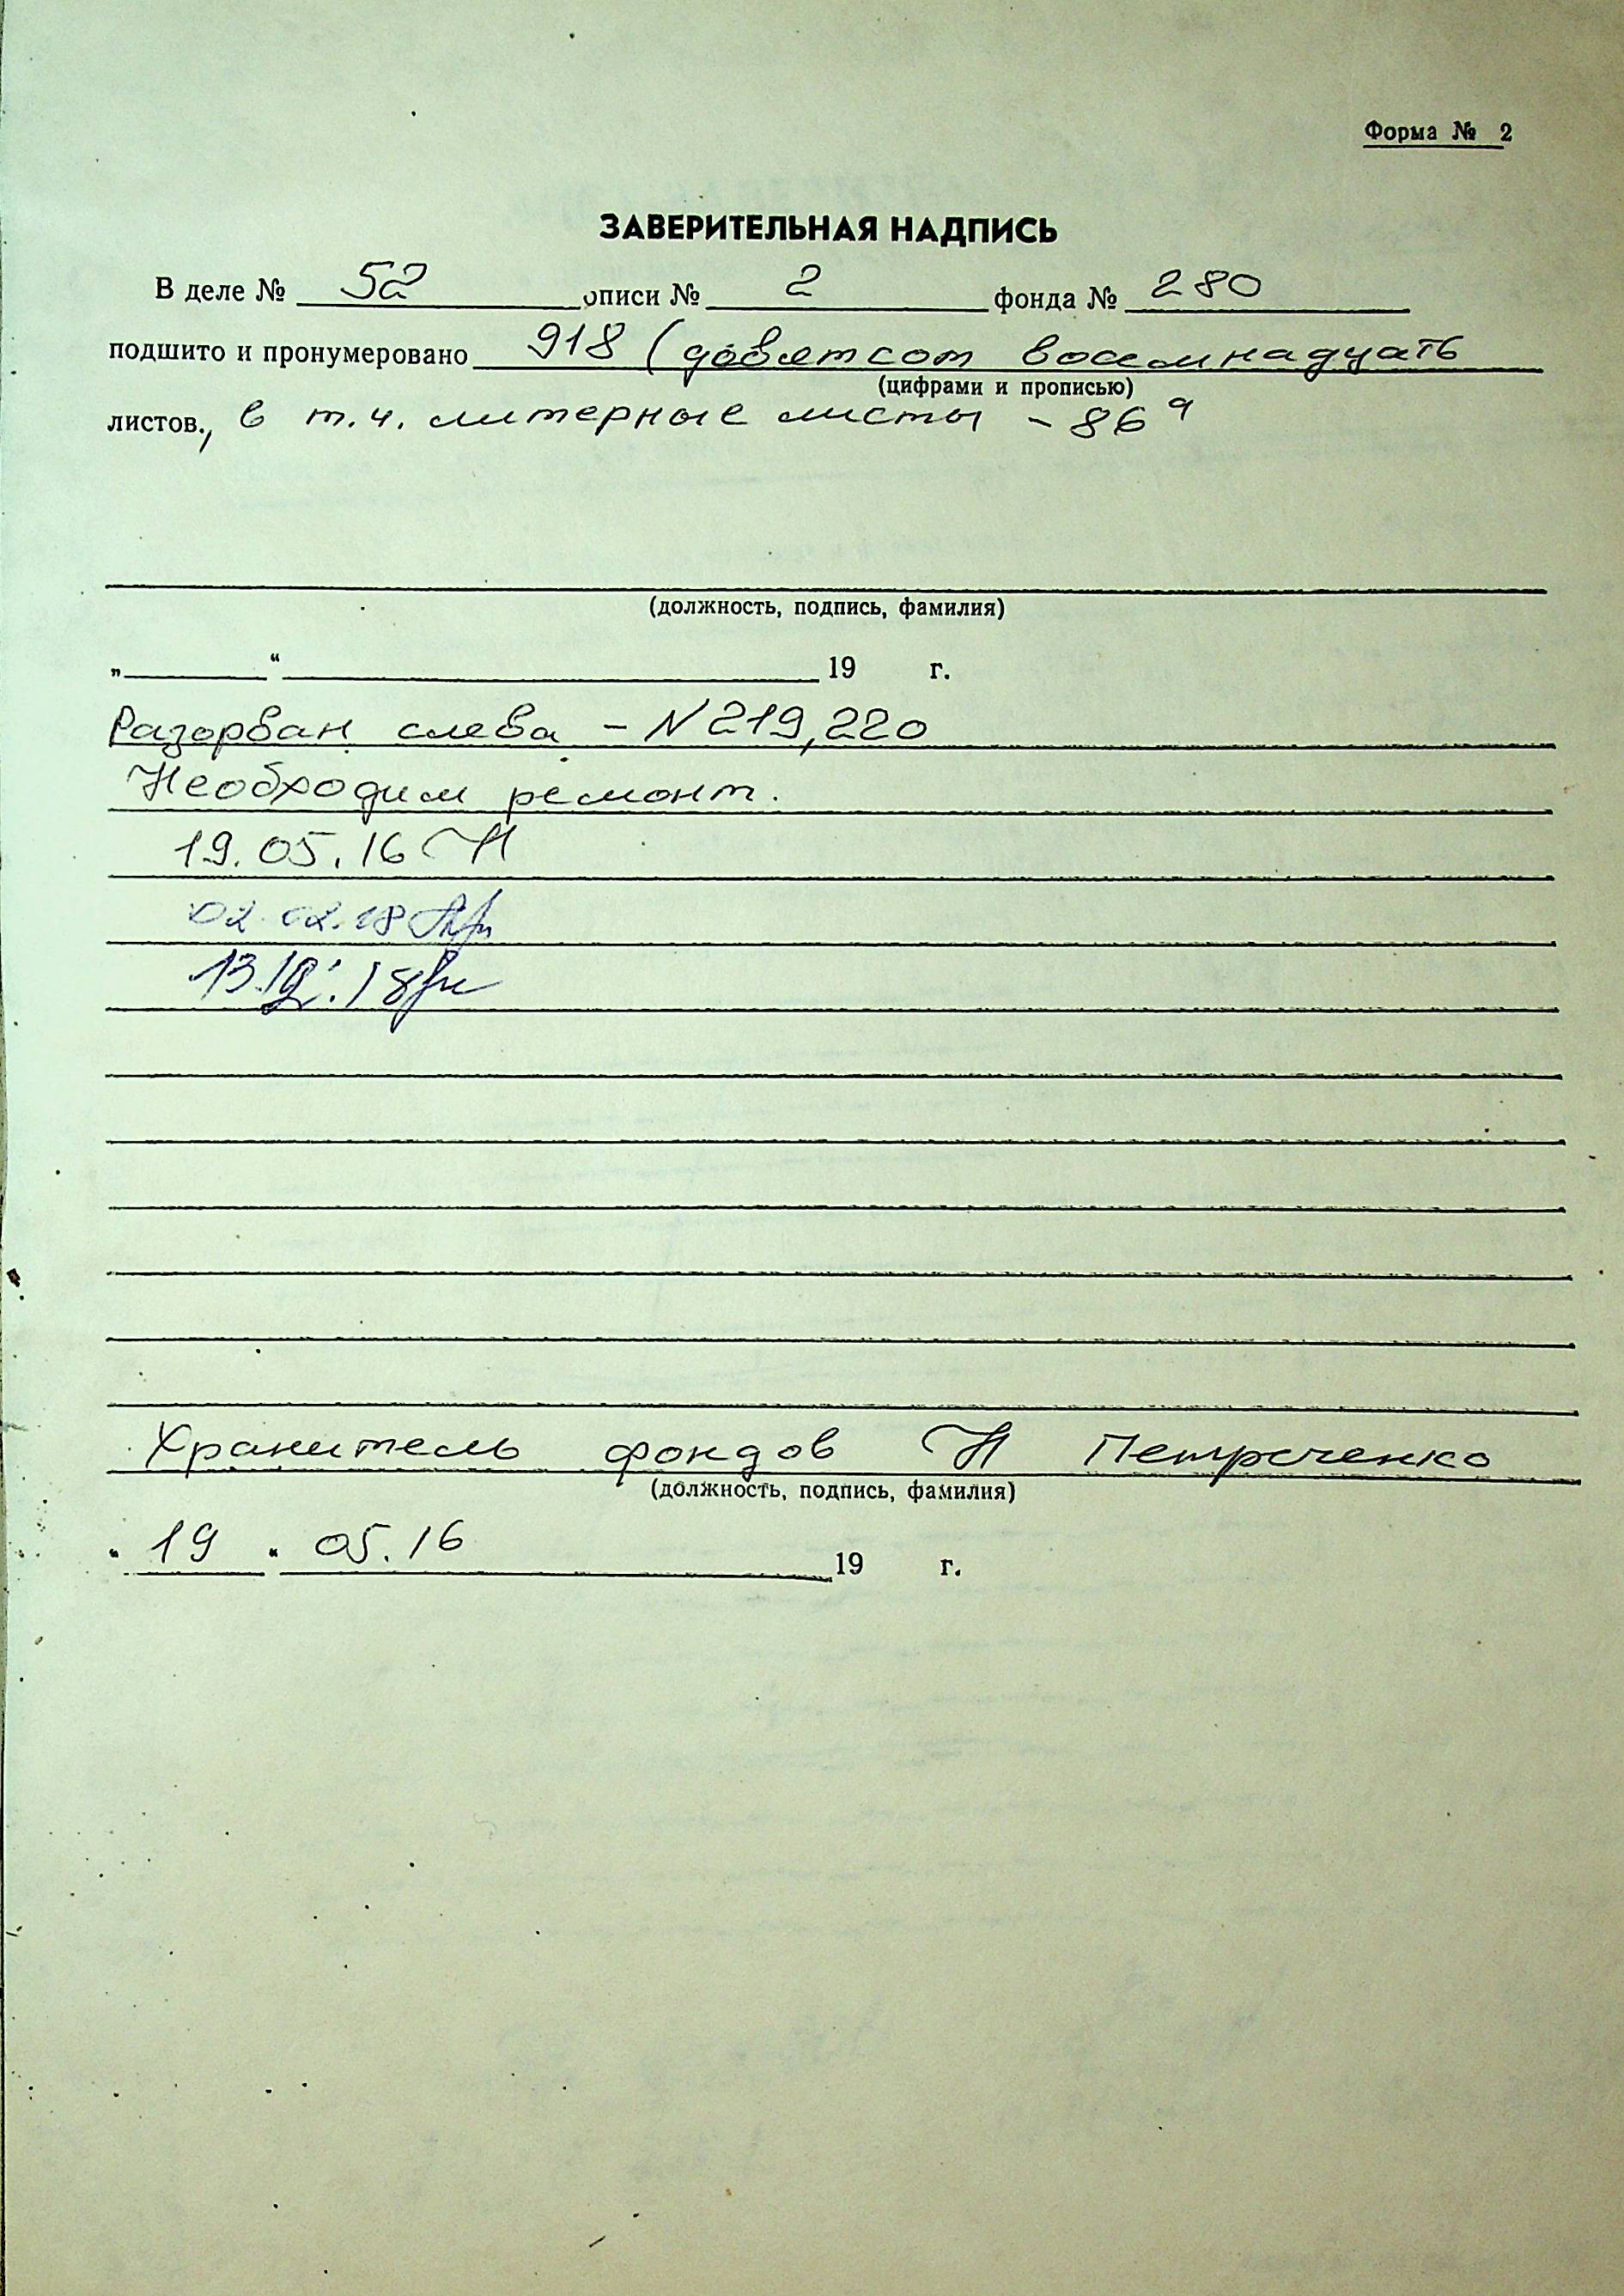 Форма № 2
ЗАВЕРИТЕЛЬНАЯ НАДПИСЬ
В деле № 52 описи № 2 фонда № 280
подшито и пронумеровано 918 (девятсот восемнадцать
(цифрами и прописью)
листов., в т.ч. литерные листы - 86а
(должность, подпись, фамилия)
„ “ 19 г.
Разорван слева - N 219,220
Необходим ремонт.
19.05.16
02.02.18
Хранитель фондов Петреченко
(должность, подпись, фамилия)
„ 19 “ 05.16 19 г.